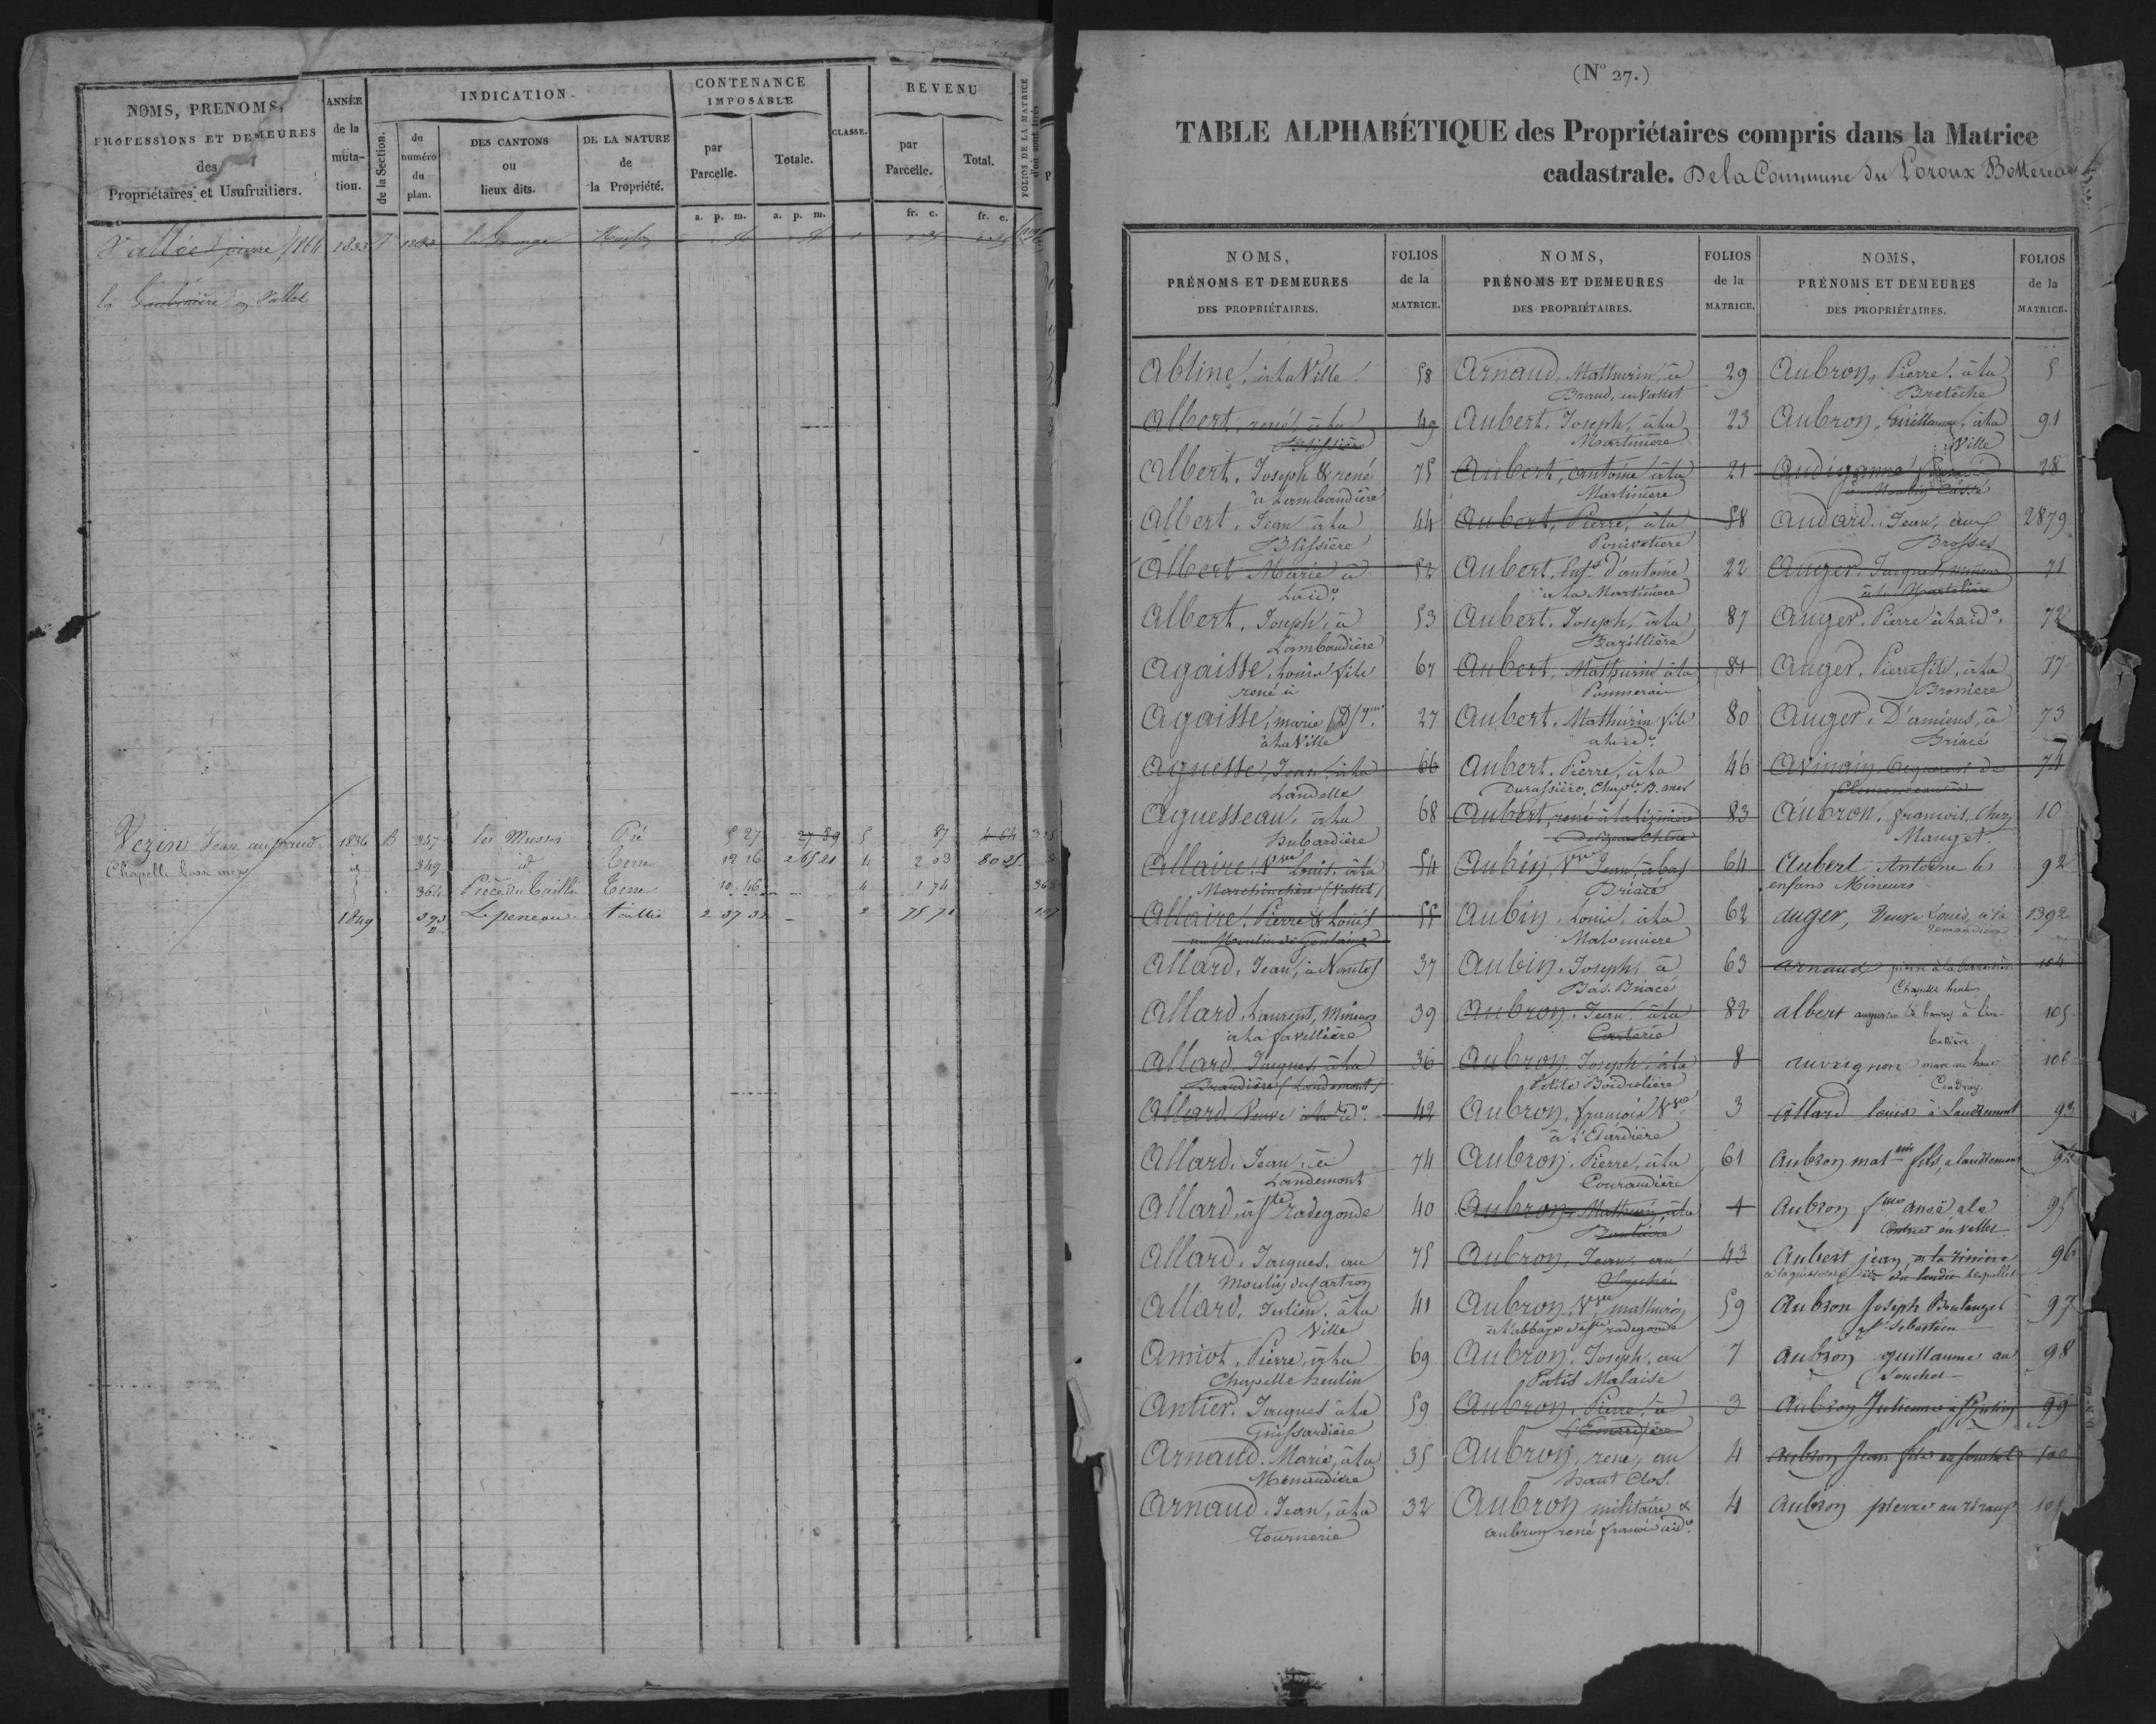 NOMS, PRENOMS,
PROFESSIONS ET DEMEURES
des
Propriétaires et Usufruitiers.
ANNÉE
de la
muta-
tion.
INDICATION
de la Section.
du
numéro
du
plan.
DES CANTONS
ou
lieux dits.
DE LA NATURE
de
la Propriété.
CONTENANCE
IMPOSABLE
par
Parcelle.
Totale.
a. p. m.
a. p. m.
CLASSE.
REVENU
par
Parcelle.
Total.
fr. c.
fr. c.
FOLIOS DE LA MATRICE
d'où sont tirés
Vallée pierre 1833
la en Vallet
Vezin Jean au 1836 B 347 les Musses Pré 5 27 27 89 5 87 4 64
Chapelle basse mer id 349 id Terre 12 16 265 21 4 2 03 80 35
364 Pièce du Taillis Terre 10 46 4 1 74
1849 393 Lepeneau taillis 2 37 32 2 75 71
(N° 27.)
TABLE ALPHABÉTIQUE des Propriétaires compris dans la Matrice
cadastrale. De la Commune du Loroux Bottereau
NOMS,
PRÉNOMS ET DEMEURES
DES PROPRIÉTAIRES.
FOLIOS
de la
MATRICE.
Abline, à la Ville 58
Albert, rené, à la 49
Blissière
Albert, Joseph & rené 75
à Lambaudière
Albert, Jean à la 44
Blissière
Albert Marie à 52
La id°.
Albert, Joseph, à 53
Lambaudière
Agaisse, Louis fils 67
rené à
Agaisse, marie 27
à la Ville
Aguesse, Jean à la 66
Landelle
Aguesseau, à la 68
Hubardière
Allaire, Vve Louis, à la 54
(Vallet)
Allaire, Pierre & Louis 55
au Moulin de
Allard, Jean, à Nantes 37
Allard, Laurent, Mineurs 39
à la favellière
Allard, Jacques à la 36
(Landemont)
Allard Veuve à la id°. 42
Allard, Jean, à 74
Landemont
Allard, à Ste radegonde 40
Allard, Jacques, au 75
Moulin du Cartron
Allard, Julien, à la 41
Ville
Amiot, Pierre, à la 69
Chapelle heulin
Antier, Jacques à la 59
Guissardière
Arnaud, Marie, à la 35
Menaudière
Arnaud, Jean, à la 32
Tournerie
NOMS,
PRÉNOMS ET DEMEURES
DES PROPRIÉTAIRES.
FOLIOS
de la
MATRICE.
Arnaud, Mathurin, à 29
Braud, en Vallet
Aubert, Joseph, à la 23
Martinière
Aubert, antoine à la 21
Martinière
Aubert, Pierre, à la 58
Poinvetiere
Aubert, Enfts d'antoine 22
à la Martinière
Aubert, Joseph, à la 87
Bazillière
Aubert, Mathurin à la 81
Pommeraie
Aubert, Mathurin fils 80
à la id°.
Aubert, Pierre, à la 46
Durassière, Chaple B. mer
Aubert, rené à la 83
Aubin, Vve Jean, à bas 64
Briacé
Aubin, Louis, à la 62
Malonnière
Aubin, Joseph, à 63
Bas. Briacé
Aubron, Jean, à la 82
Carterie
Aubron, Joseph, à la 8
Petite Boidrolière
Aubron, françois Vve 3
à l'Edardière
Aubron, Pierre, à la 61
Couraudière
Aubron, Mathurin, à la 4
Aubron, Jean, au 43
Aubron, Vve mathurin 59
à l'abbaye de Ste radegonde
Aubron, Joseph, au 7
Patis Malaise
Aubron, Pierre, à 3
Aubron, rené, au 4
haut Clos.
Aubron militaire & 4
aubron rené françois à id°.
NOMS,
PRÉNOMS ET DEMEURES
DES PROPRIÉTAIRES.
FOLIOS
de la
MATRICE.
Aubron, Pierre, à la 5
Bretèche
Aubron, Guillaume, à la 91
Ville
Audiganne 28
au Moulin Cassé
Audard, Jean, aux 2879
Brosses
Auger, Jacques, mineur 71
à la
Auger, Pierre à la id°. 72
Auger, Pierre fils, à la 77
Bronière
Auger, D'amiens, à 73
Briacé
Avinain 74
Aubron, françois, Chez 10
Mauget.
Aubert Antoine le 92
enfans Mineurs
auger, Veuve Louis, à la 1392
Arnaud pierre à la 104
Chapelle heulin
albert augustin & 105
auvrignon marc au haut 106
Coudray.
Allard louis à Landemont 93
Aubron matrin fils, a landemont 94
Aubron 95
en vallet
Aubert jean, 96
Aubron Joseph Boulanger 97
st sebastien
Aubron guillaume au 98
fouchet
Aubron Julienne à 99
Aubron Jean fils au fouchet 100
Aubron pierre au 101